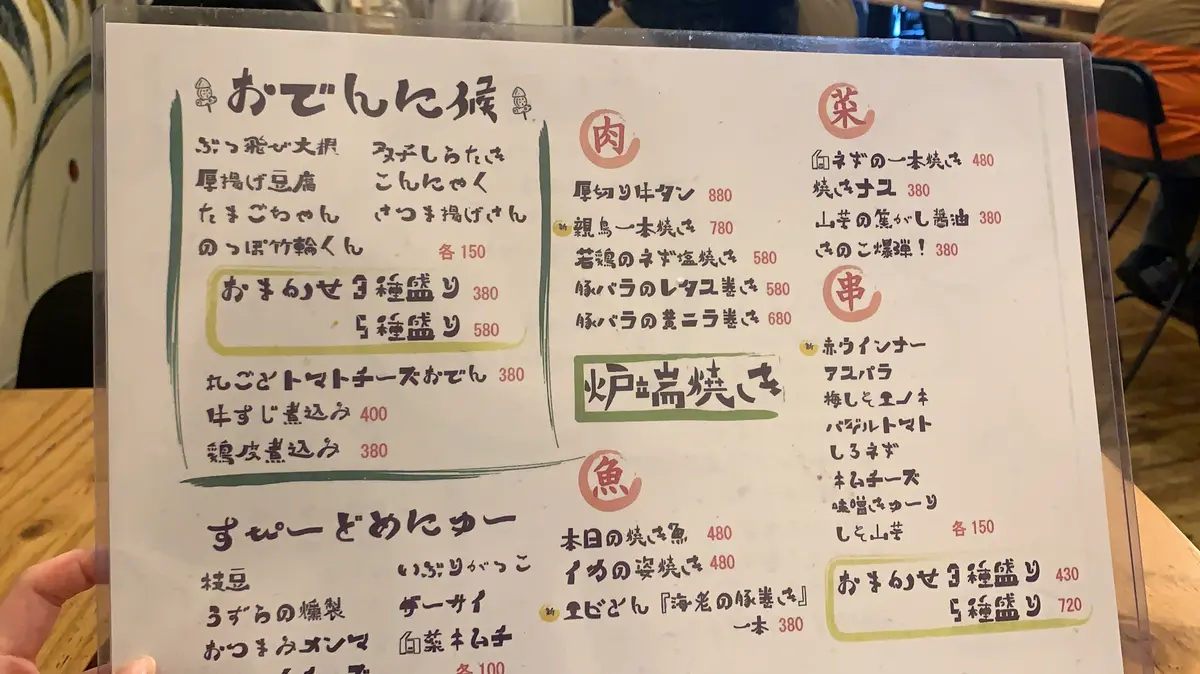 おでんに候
ぶっ飛び大根
玉子しらたき
厚揚げ豆腐
こんにゃく
たまごちゃん
さつま揚げさん
のっぽ竹輪くん
各150
おまかせ3種盛り 380
5種盛り 580
丸ごとトマトチーズおでん 380
牛すじ煮込み 400
鶏皮煮込み 380
すぴーどめにゅー
枝豆
いぶりがっこ
うずらの燻製
ザーサイ
おつまみメンマ
白菜キムチ
各100
肉
厚切り牛タン 880
新 親鳥一本焼き 780
若鶏のネギ塩焼き 580
豚バラのレタス巻き 580
豚バラの黄ニラ巻き 680
炉端焼き
魚
本日の焼き魚 480
イカの姿焼き 480
新 エビどん『海老の豚巻き』
一本 380
菜
白ネギの一本焼き 480
焼きナス 380
山芋の焦がし醤油 380
きのこ爆弾! 380
串
新 赤ウインナー
アスパラ
梅しそエノキ
バジルトマト
しろネギ
キムチーズ
味噌きゅーり
しそ山芋
各150
おまかせ3種盛り 430
5種盛り 720